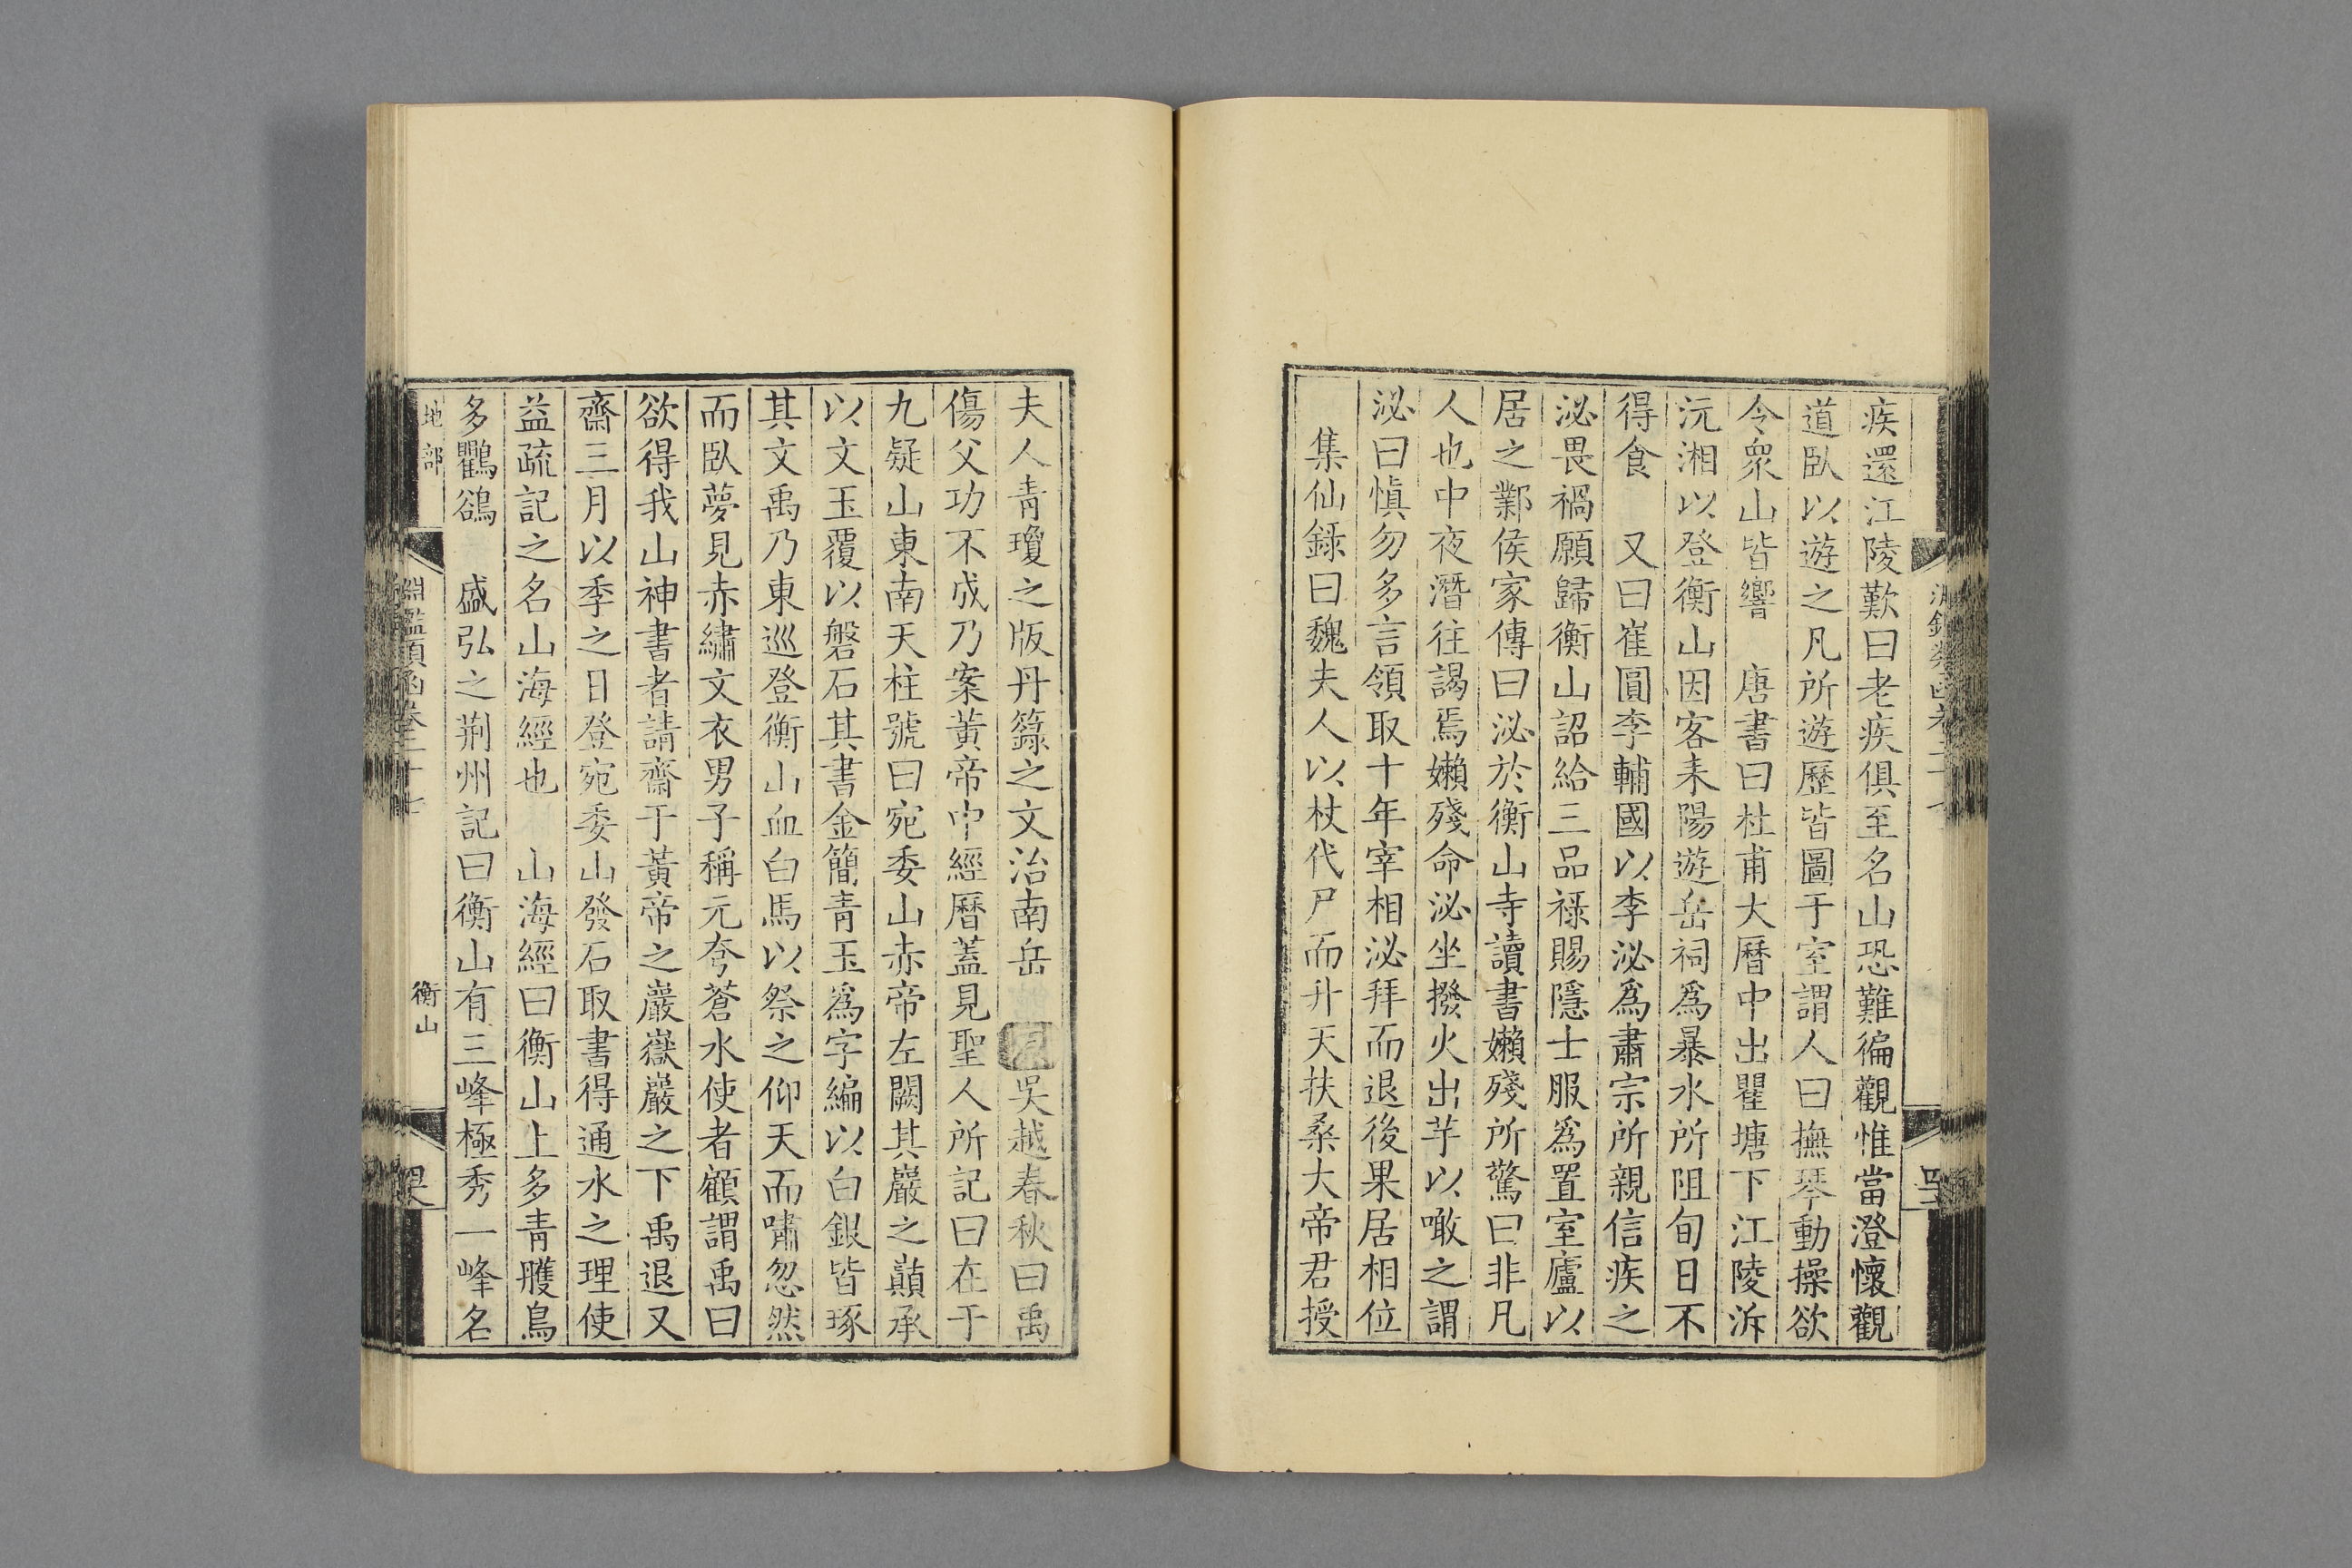 疾還江陵歎曰老疾俱至名山恐難徧觀惟當澄懷觀
道臥以遊之凡所遊歷皆圖于室謂人曰撫琴動操欲
令衆山皆響　唐書曰杜甫大曆中出瞿塘下江陵泝
沅湘以登衡山因客耒陽遊岳祠爲暴水所阻旬日不
得食　又曰崔圓李輔國以李泌爲肅宗所親信疾之
泌畏禍願歸衡山詔給三品祿賜隱士服爲置室廬以
居之鄴侯家傳曰泌於衡山寺讀書嬾殘所驚曰非凡
人也中夜潛往謁焉嬾殘命泌坐撥火出芋以噉之謂
泌曰愼勿多言領取十年宰相泌拜而退後果居相位
集仙錄曰魏夫人以杖代尸而升天扶桑大帝君授
夫人青瓊之版丹籙之文治南岳　吳越春秋曰禹
傷父功不成乃案黃帝中經曆蓋見聖人所記曰在于
九疑山東南天柱號曰宛委山赤帝左闕其巖之巔承
以文玉覆以磐石其書金簡青玉爲字編以白銀皆琢
其文禹乃東巡登衡山血白馬以祭之仰天而嘯忽然
而臥夢見赤繡文衣男子稱元夸蒼水使者顧謂禹曰
欲得我山神書者請齋于黃帝之巖嶽巖之下禹退又
齋三月以季之日登宛委山發石取書得通水之理使
益疏記之名山海經也　山海經曰衡山上多青雘鳥
多鸜鵒　盛弘之荊州記曰衡山有三峰極秀一峰名
地部
淵鑑類函卷二十七
衡山